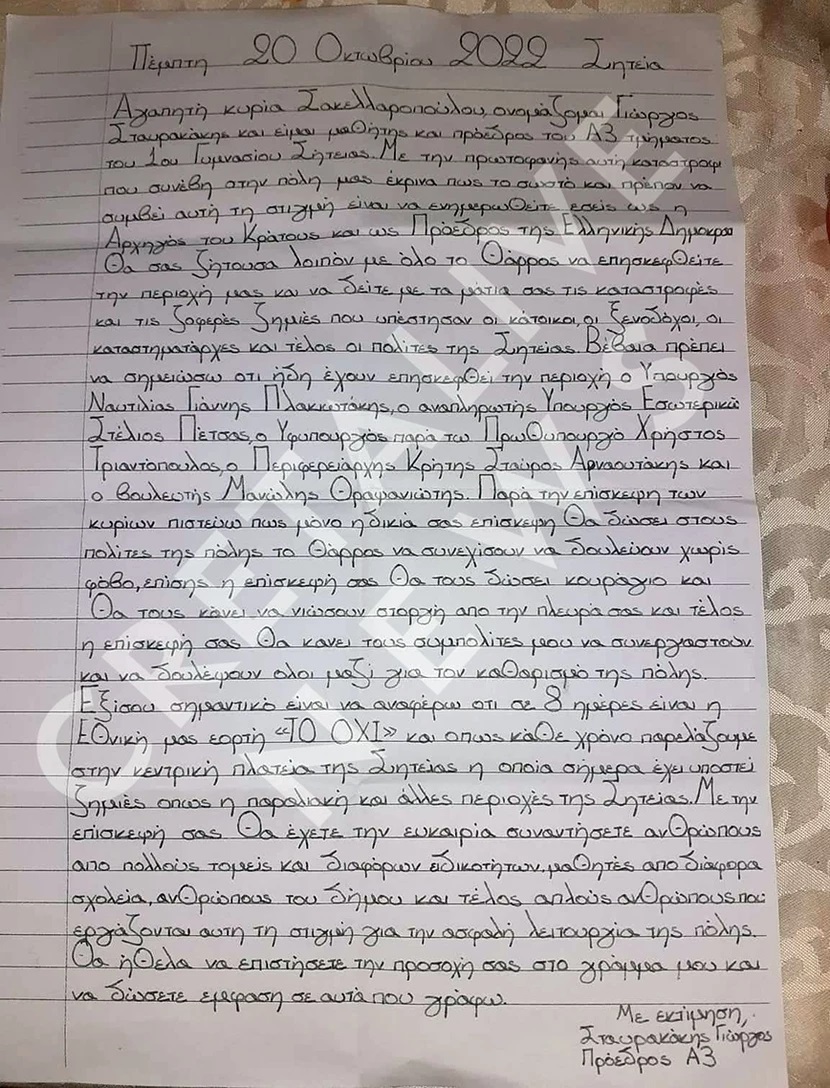 Πέμπτη 20 Οκτωβρίου 2022 Σητεία
Αγαπητή κυρία Σακελλαροπούλου, ονομάζομαι Γιώργος
Σταυρακάκης και είμαι μαθητής και πρόεδρος του Α3 τμήματος
του 1ου Γυμνασίου Σητείας. Με την πρωτοφανής αυτή καταστροφή
που συνέβη στην πόλη μας έκρινα πως το σωστό και πρέπον να
συμβεί αυτή τη στιγμή είναι να ενημερωθείτε εσείς ως η
Αρχηγός του Κράτους και ως Πρόεδρος της Ελληνικής Δημοκρα
Θα σας ζητούσα λοιπόν με όλο το Θάρρος να επησκεφθείτε
την περιοχή μας και να δείτε με τα μάτια σας τις καταστροφές
και τις ζοφερές ζημιές που υπέστησαν οι κάτοικοι, οι ξενοδόχοι, οι
καταστηματάρχες και τέλος οι πολίτες της Σητείας. Βέβαια πρέπει
να σημειώσω οτι ήδη έχουν επησκεφθεί την περιοχή ο Υπουργός
Ναυτιλίας Γιάννης Πλακιωτάκης, ο αναπληρωτής Υπουργός Εσωτερικώ
Στέλιος Πέτσας, ο Υφυπουργός παρά τω Πρωθυπουργό Χρήστος
Τριαντόπουλος, ο Περιφερειάρχης Κρήτης Σταύρος Αρναουτάκης και
ο βουλευτής Μανώλης Θραψανιώτης. Παρά την επίσκεψη των
κυρίων πιστεύω πως μόνο η δικιά σας επίσκεψη Θα δώσει στους
πολίτες της πόλης το Θάρρος να συνεχίσουν να δουλεύουν χωρίς
φόβο, επίσης η επίσκεψή σας Θα τους δώσει κουράγιο και
Θα τους κάνει να νιώσουν στοργή απο την πλευρά σας και τέλος
η επίσκεψή σας Θα κανει τους συμπολίτες μου να συνεργαστούν
και να δουλέψουν ολοι μαζί για τον καθαρισμό της πόλης.
Εξίσου σημαντικό είναι να αναφέρω οτι σε 8 ημέρες είναι η
Εθνική μας εορτή «ΤΟ ΟΧΙ» και οπως κάθε χρόνο παρελάζουμε
στην κεντρική πλατεία της Σητείας η οποία σήμερα έχει υποστεί
ζημιές οπως η παραλιακή και άλλες περιοχές της Σητείας. Με την
επίσκεψή σας Θα έχετε την ευκαιρία συναντήσετε ανθρώπους
απο πολλούς τομείς και διαφόρων ειδικοτήτων, μαθητές απο διάφορα
σχολεία, ανθρώπους του δήμου και τέλος απλούς ανθρώπους που
εργάζονται αυτη τη στιγμή για την ασφαλή λειτουργία της πόλης.
Θα ήθελα να επιστήσετε την προσοχή σας στο γράμμα μου και
να δώσετε εμφαση σε αυτά που γράφω.
Με εκτίμηση,
Σταυρακάκης Γιώργος
Πρόεδρος Α3
CRETALIVE
NEWS